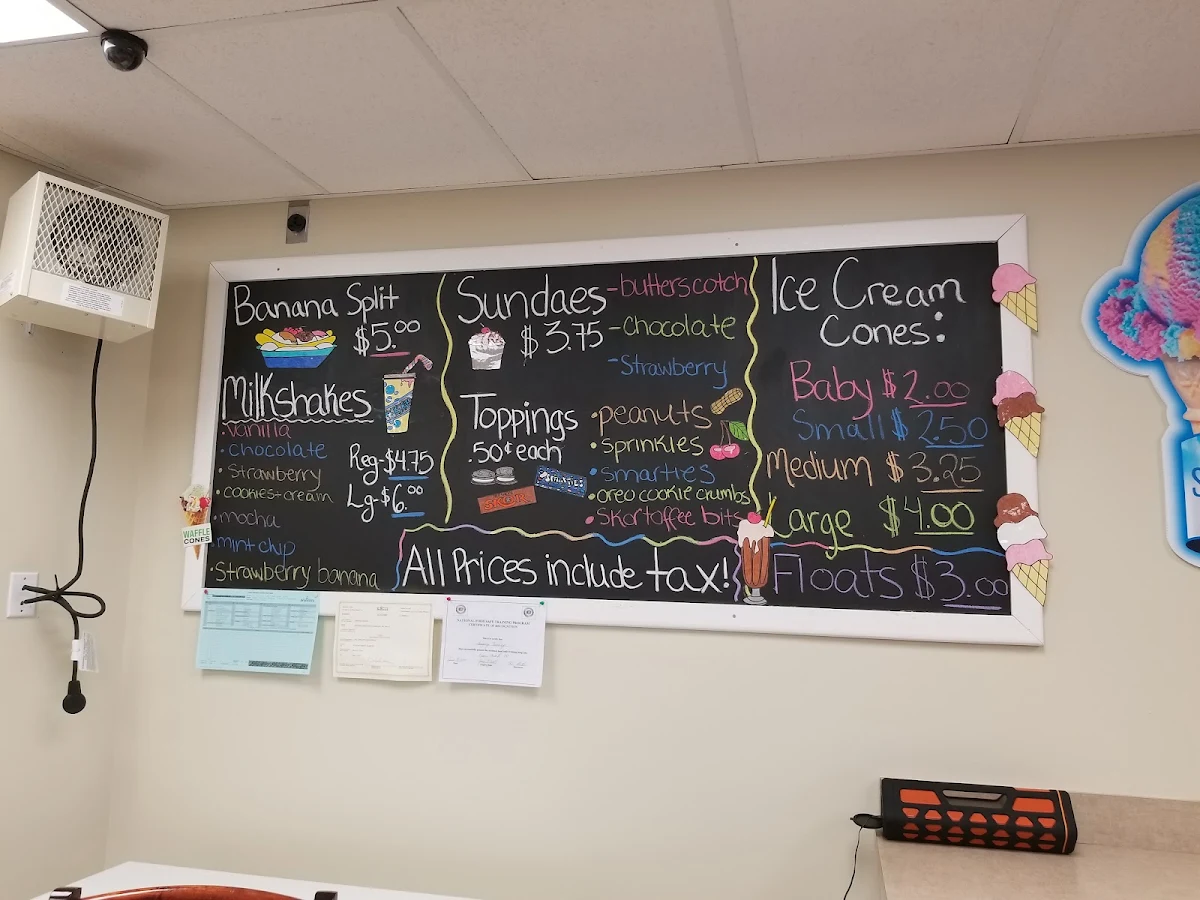 Banana Split
$5.00
Milkshakes
•vanilla
•chocolate
•strawberry
•cookies+cream
•mocha
•mint chip
•Strawberry banana
Reg-$4.75
Lg-$6.00
Sundaes
$3.75
-butterscotch
-chocolate
-Strawberry
Toppings
.50¢ each
•peanuts
•sprinkles
•smarties
•oreo cookie crumbs
•Skor toffee bits
SKOR
All Prices include tax!
Ice Cream
Cones:
Baby $2.00
Small $2.50
Medium $3.25
Large $4.00
Floats $3.00
WAFFLE
CONES